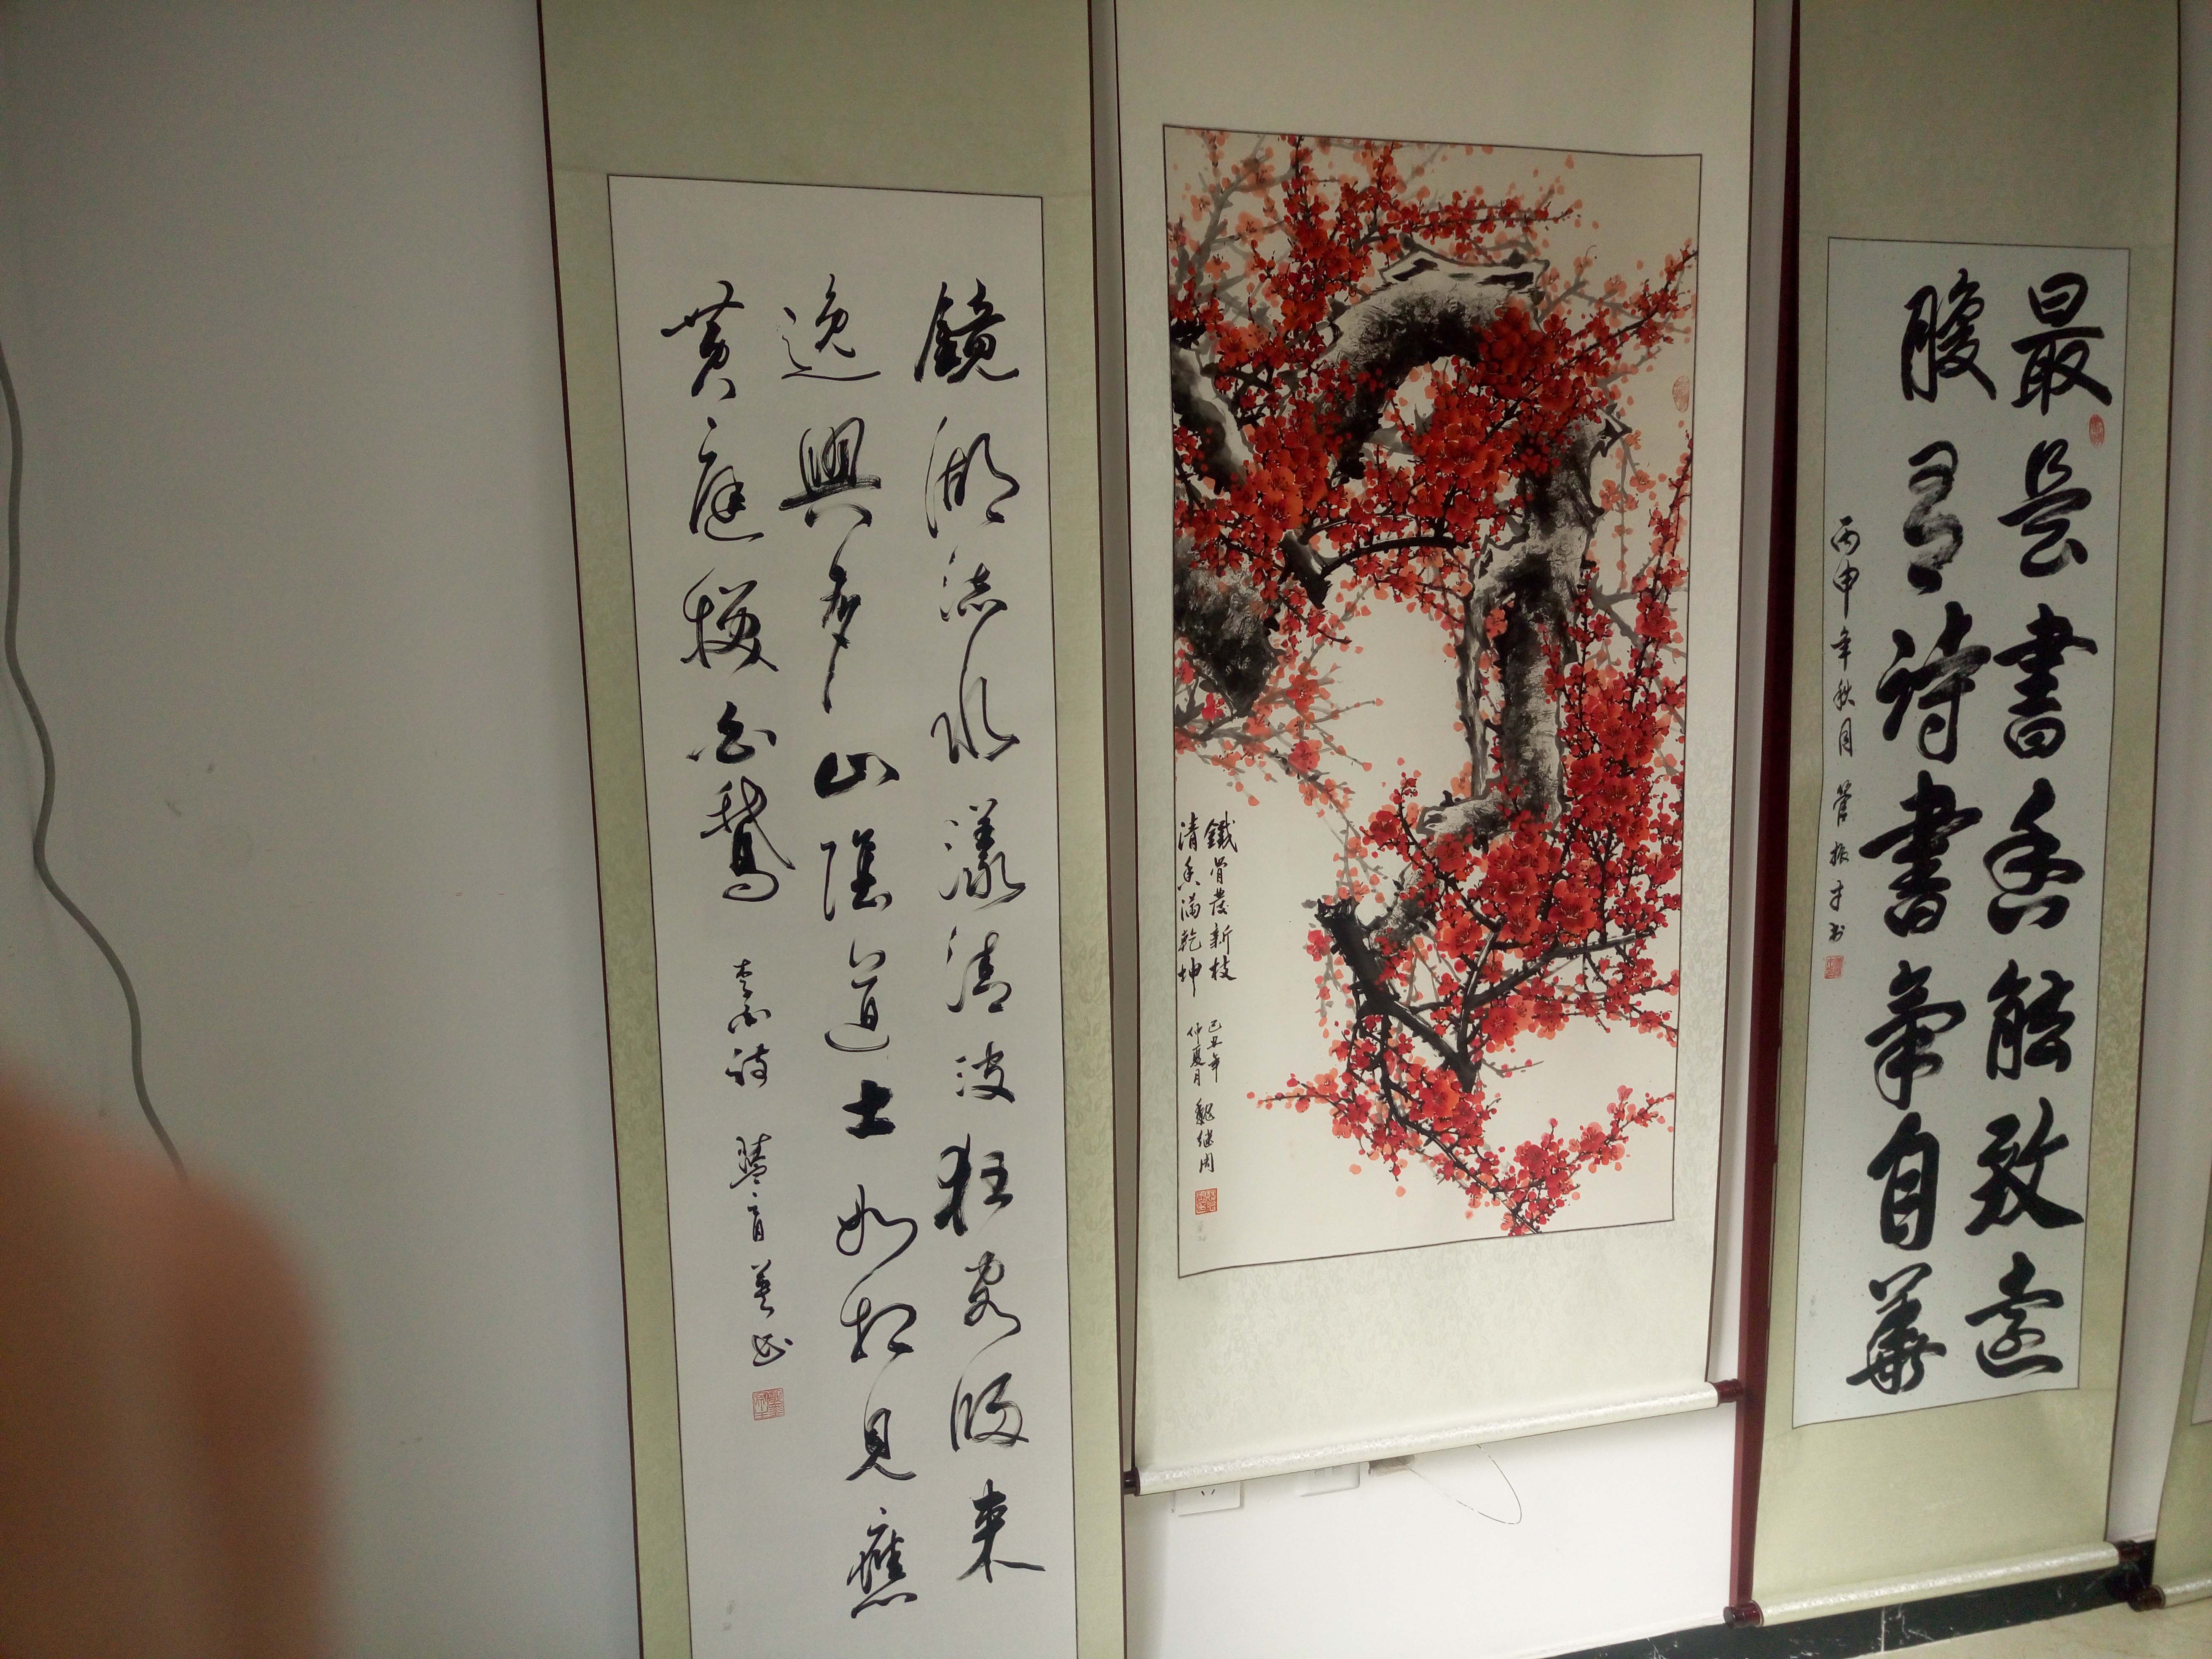 鏡湖流水漾清波狂客歸来
逸興多山陰道士如相見應
黄庭換白鵝 李白詩
鐵骨發新枝
清香滿乾坤
己丑年
仲夏月 魏继周
最是書香能致遠
腹有詩書氣自華
丙申年秋月 管振书